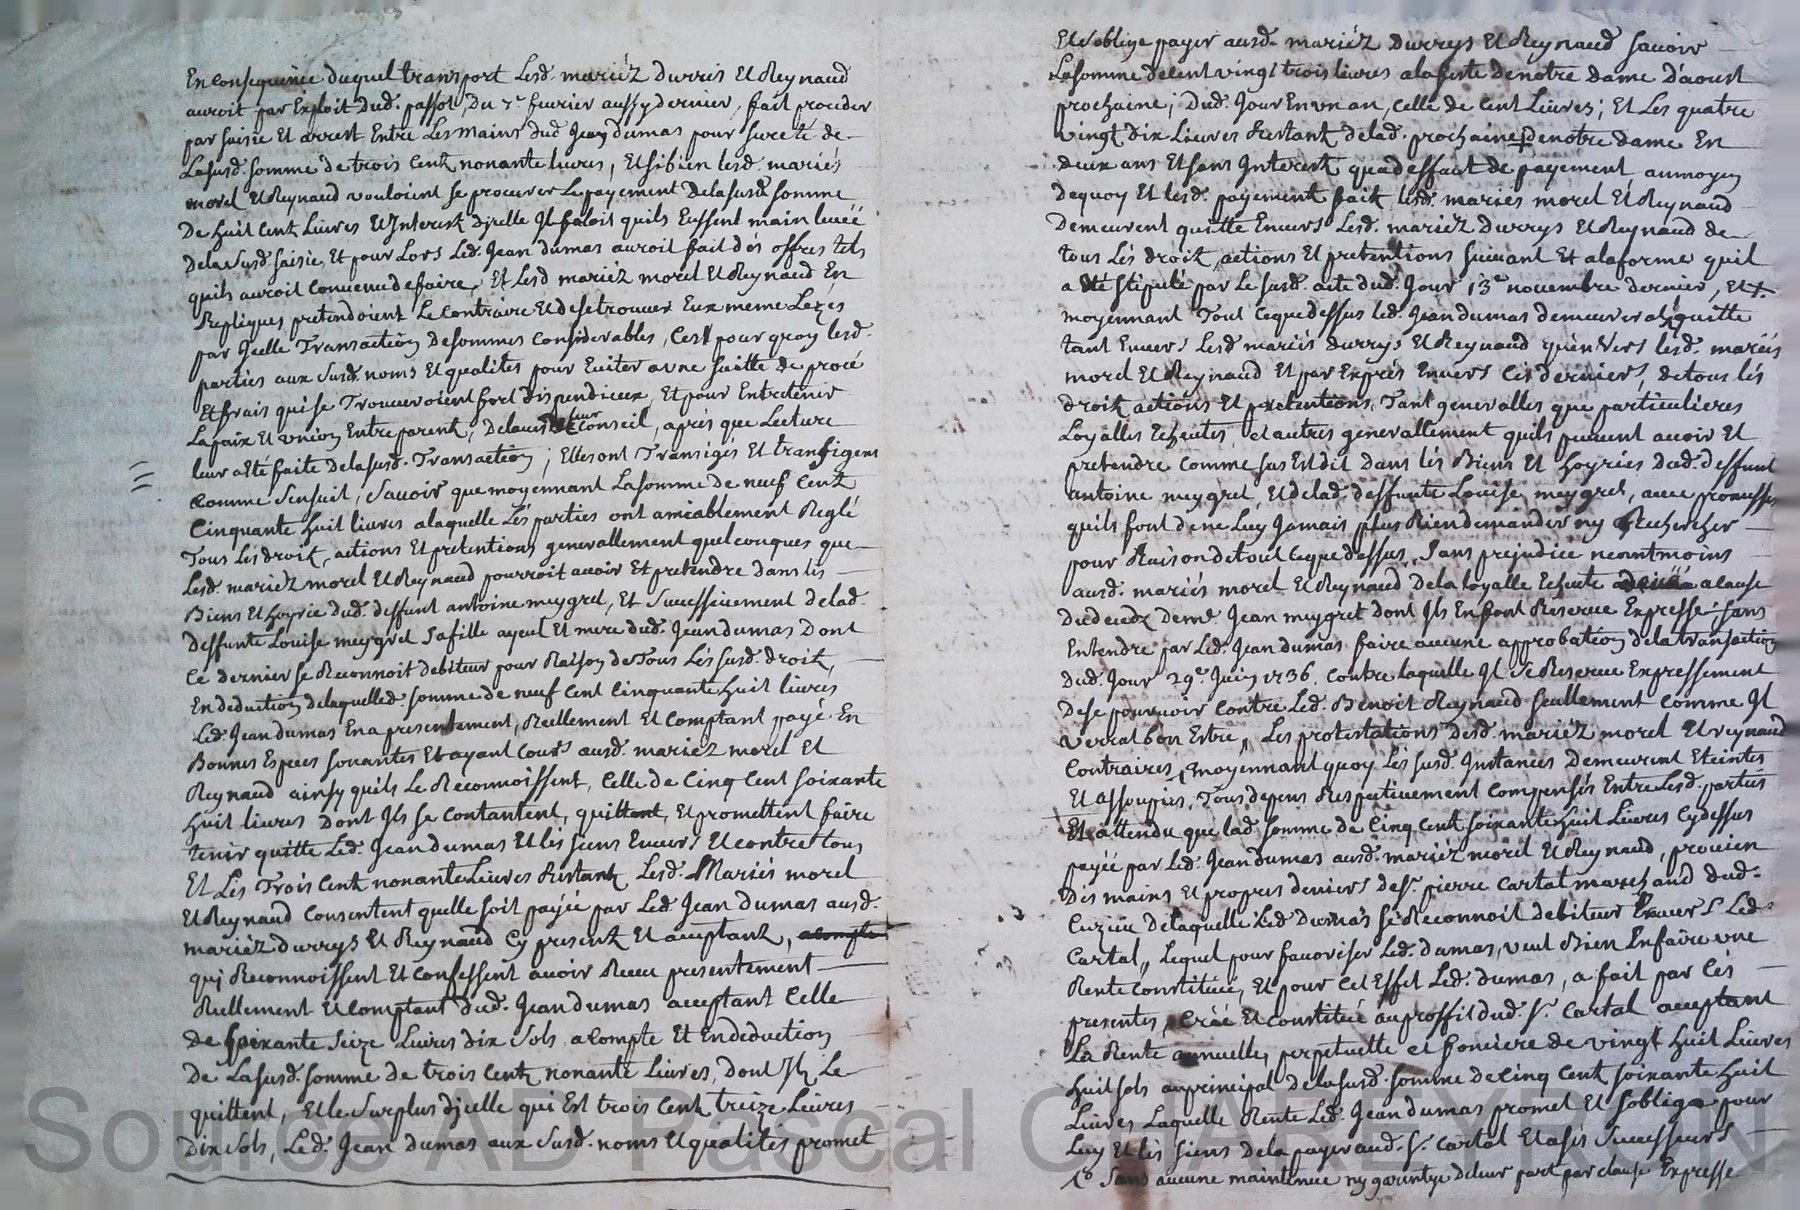 En consequence duquel transport Lesd. mariéz Durris Et Reynaud
auroit par Exploit dud. passot, Du 7e fevrier aussy dernier, fait proceder
par saisie Et arrest Entre Les mains dud Jean dumas pour sureté de
Lasusd. somme de trois Cent nonante livres, Et si bien lesd. mariés
morel Et Reynaud vouloint se procurer Le payement Dela susd. somme
De huit Cent Livres Et Interest d'jcelle Il faloit quils Eussent main levéé
Dela Susd saisie, Et pour Lors Led. Jean dumas auroit fait dés offres tels
quils auroit Convenu de faire, Et Lesd mariéz morel Et Reynaud En
Repliques pretendoient Le Contraire Et dese trouver Eux meme Lezés
par Jcelle Transaction De sommes Considerables, C'est pour quoy lesd.
parties aux Susd. noms Et qualités pour Eviter a une suitte de procé
Et frais qui se Trouveroient fort dispendieux, Et pour Entretenir
La paix Et union Entre parent, De l'avis de leur Conseil, aprés que Lecture
leur a Eté faite dela susd. Transaction; Elles ont Transigés Et transigent
Comme Sensuit, Savoir que moyennant La somme de neuf Cent
Cinquante huit livres alaquelle Lés parties ont amiablement Reglé
Tous Les droit, actions Et pretentions generallement quelconques que
Lesd. mariéz morel Et Reynaud pourroit avoir Et pretendre dans lés
Biens Et hoyrie dud. deffunt antoine meygret, Et Successivement delad.
Deffunte Louise meygret Sa fille ayeul Et mere dud. Jean dumas Dont
Ce dernier se Reconnoit debiteur pour Raison de Tous Lés susd. droit,
En deduction delaquelled. somme de neuf Cent Cinquante huit livres
Led. Jean dumas En a presentement, Reellement Et Comptant payé En
Bonnes Especes sonantes Et ayant Cours ausd. mariéz morel Et
Reynaud ainsy quils Le Reconnoissent, Celle de Cinq Cent soixante
huit livres Dont Ils se Contantent, quittent, Et promettent faire
tenir quitte Led. Jean dumas Et lés siens Envers Et contre tous
Et Les Trois Cent nonante Livres Restant Lesd. Mariés morel
Et Reynaud Consentent quelle soit payéé par Led. Jean dumas ausd.
mariéz Durrys Et Reynaud Cy present Et acceptant, acompte
qui Reconnoissent Et Confessent avoir Receu presentement
Reellement Et Comptant dud. Jean dumas acceptant Celle
de soixante Seize Livres dix Sols acompte Et En deduction
de La susd. somme de trois Cent nonante Livres, dont Ils Le
quittent, Et le Surplus d'jcelle qui Est trois Cent treize Livres
Dix Sols, Led. Jean dumas aux Susd. noms Et qualités promet
Et s'oblige payer ausd. mariéz Durrys Et Reynaud savoir
La somme de Cent vingt trois livres ala feste de notre dame D'aoust
prochaine; Dud. Jour En un an, Celle de Cent Livres; Et Les quatre
vingt dix Livres Restant delad. prochaine + de notre dame En
deux ans Et sans Interest qu'ad'effaut de payement au moyen
Dequoy Et lesd. payement fait lesd. mariés morel Et Reynaud
Demeurent quitte Envers Lesd. mariéz Durrys Et Reynaud de
tous Lés droit, actions Et pretentions suivant Et ala forme quil
a été stipulé par Le susd. acte dud. Jour 13e novembre dernier, Et
moyennant Tout Ceque dessus led. Jean dumas demeurera quitte
tant Envers Lesd mariés Durrys Et Reynaud qu'En Vers lesd. mariés
morel Et Reynaud Et par Exprés Envers Ces derniers, de tous lés
droit actions Et pretentions, Tant generalles que particulieres
Loyalles Echeutes et autres generallement quils peuvent avoir Et
pretendre Comme sus Est dit Dans lés Biens Et hoyries Dud. deffunt
antoine meygret, Et delad. deffunte Louise meygret, avec promesses
quils font de ne Luy Jamais plus Rien demander ny Rechercher
pour Raison de tout Ceque dessus, Sans prejudice neantmoins
ausd. mariés morel Et Reynaud De la loyalle Echeute acause
Dud decedz De me Jean meygret dont Ils En font Reserve Expresse, sans
Entendre par Led. Jean dumas faire aucune approbation de la transaction
Dud. Jour 29e Juin 1736. Contre laquelle Il Se Reserve Expressement
De se pourvoir Contre Led. Benoit Reynaud seullement Comme Il
verrat bon Estre, Les protestations desd. mariéz morel Et reynaud
Contraires, moyennant quoy Lés susd. Instances Demeurent Eteintes
Et assoupies, Tous depens Respectivement Compensés Entre Lesd. parties
Et attendu que lad. somme de Cinq Cent soixante huit Livres Cy dessus
payéé par Led. Jean dumas ausd. mariéz morel Et Reynaud, provien
Dés mains Et propres deniers de sr. pierre Cartal marchand dud.
Cuzieu Delaquelle Led Dumas se Reconnoit debiteur Envers Led.
Cartal, Lequel pour favoriser Led. dumas, veut Bien En faire une
Rente Constituéé, Et pour Cet Effet Led. dumas, a fait par Cés
presentes, Créé Et Constitué au proffit dud. sr. Cartal acceptant
La Rente annuelle, perpetuelle et fonciere de vingt huit Livres
huit sols au principal dela susd. somme de Cinq Cent soixante huit
Livres Laquelle Rente Led. Jean dumas promet Et soblige pour
Luy Et lés siens dela payer aud. Sr. Cartal Et a sés Successeurs
Sans aucune maintenue ny garentye de leur part par clause Expresse
Source AD Pascal CHAREYRON